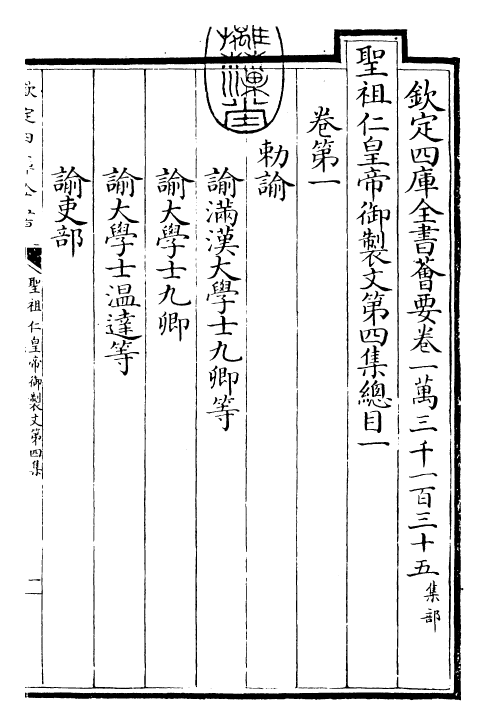 欽定四庫全書薈要卷一萬三千一百三十五集部
聖祖仁皇帝御製文第四集總目一
卷第一
勅諭
諭滿漢大學士九卿等
諭大學士九卿
諭大學士温達等
諭吏部
欽定四庫全書
聖祖仁皇帝御製文第四集
一